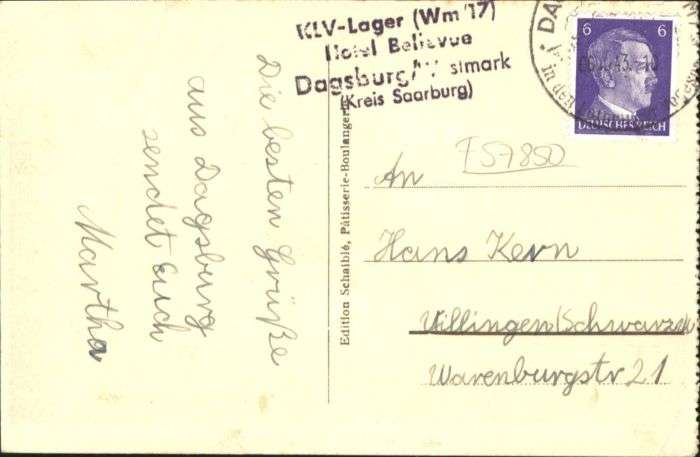 KLV-Lager (Wm 17)
Hotel Bellevue
Dagsburg/Westmark
(Kreis Saarburg)
6 6
DEUTSCHES REICH
F57850
Die besten Grüße
aus Dagsburg
sendet Euch
Martha
Edition Schaiblé, Pâtisserie-Boulangerie
An
Hans Kern
Villingen/Schwarzw
Warenburgstr 21